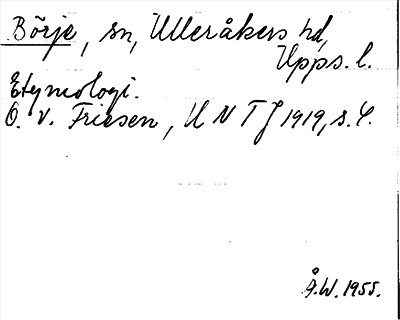 Börje, sn, Ulleråkers hd,
Upps. l.
Etymologi.
O. v. Friesen, U N T J 1919, s. 4.
Å.W. 1955.